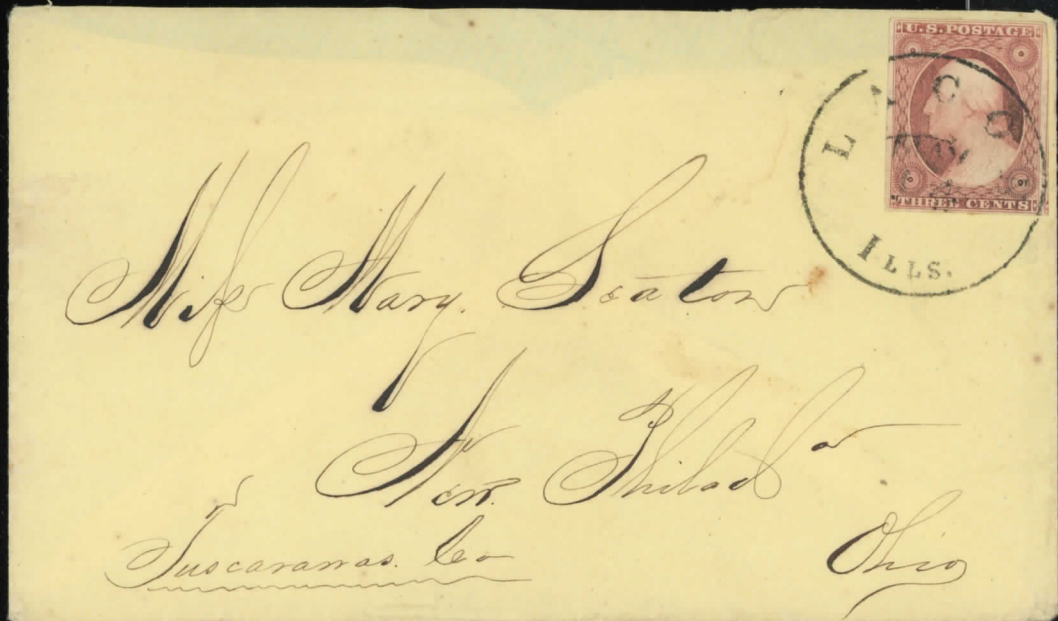 U.S. POSTAGE
THREE CENTS
LACO
ILLS.
Miss Mary. Seaton
New. Philad a
Tuscarawas. Co
Ohio